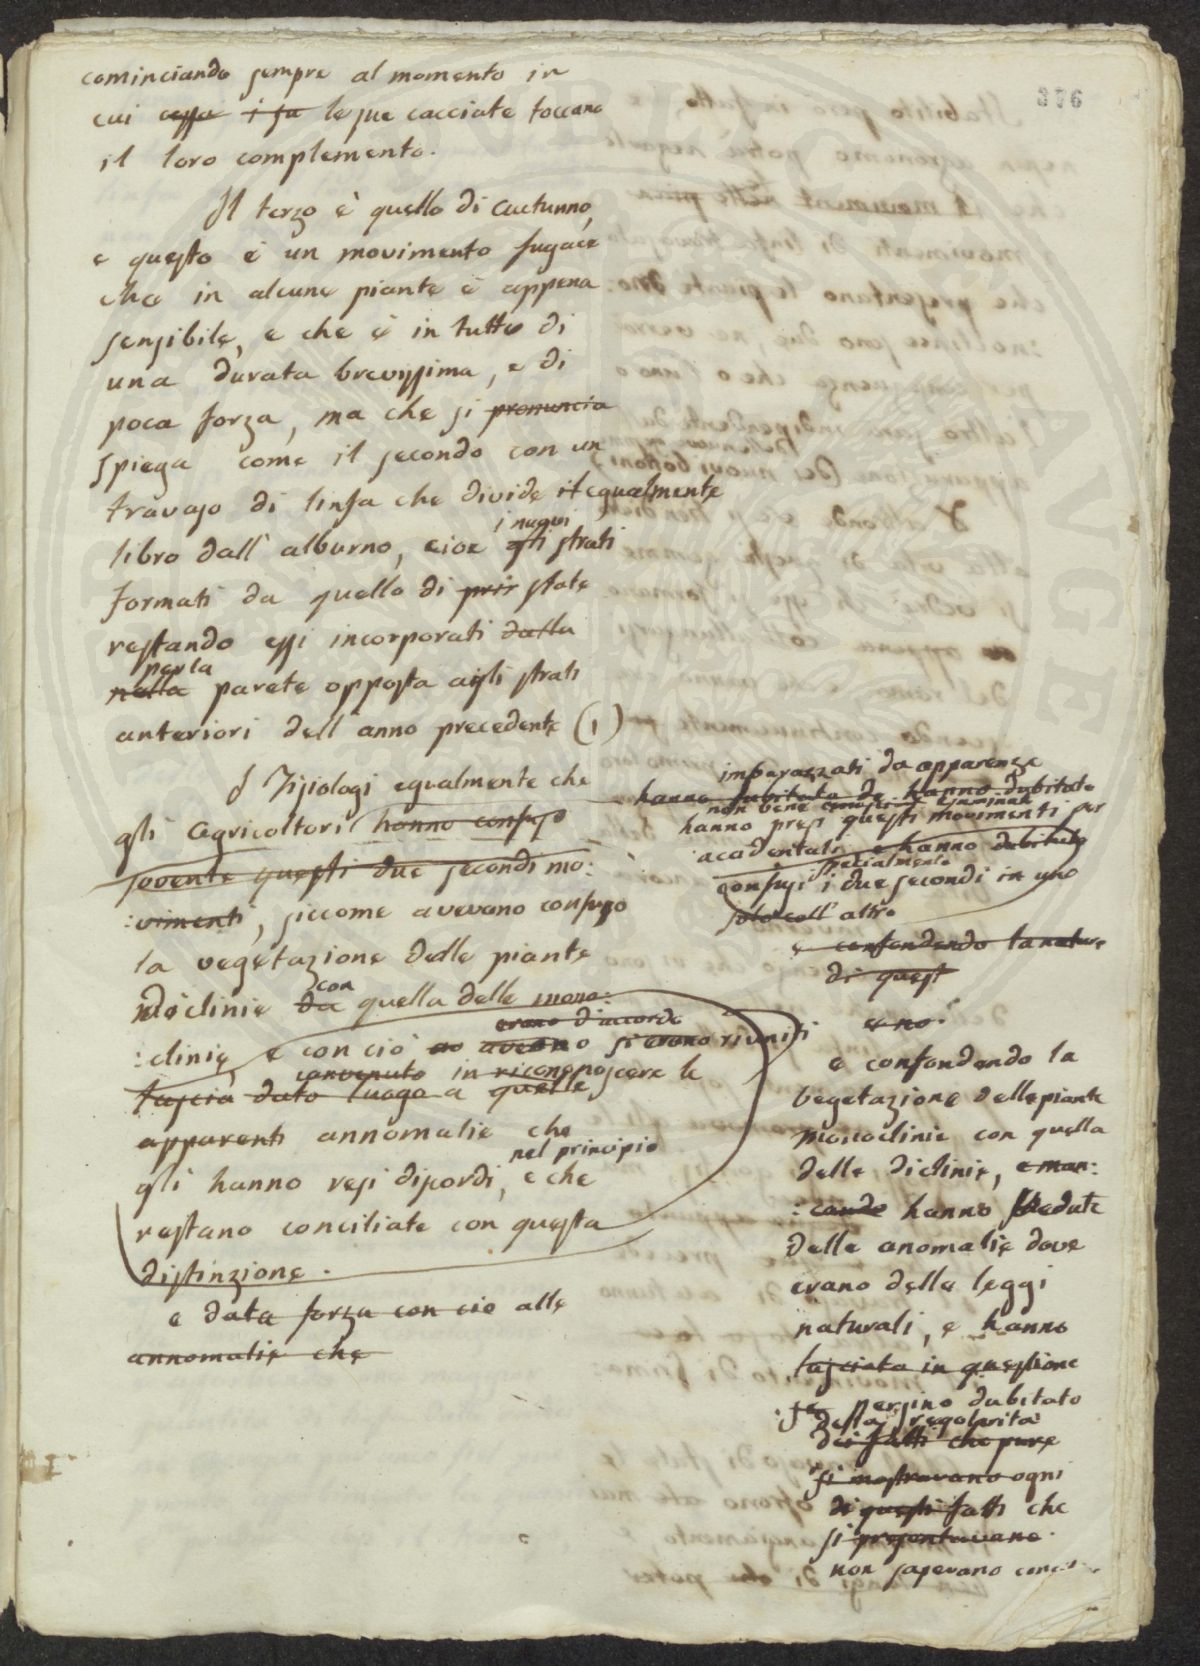 376
cominciando sempre al momento in
cui cessa i su le sue cacciate toccano
il loro complemento.
Il terzo è quello di Autunno,
e questo è un movimento fugace
che in alcune piante è appena
sensibile, e che è in tutte di
una durata brevissima, e di
poca forza, ma che si pronuncia
spiega come il secondo con un
travaso di linfa che divide egualmente il
libro dall' alburno, cioè gli strati
i nuovi
formati da quello di prir state
restando essi incorporati dalla
per la
nella parete opposta agli strati
anteriori dell' anno precedente (1)
I Fisiologi egualmente che
gli Agricoltori hanno confuso
sovente questi due secondi mo:
:vimenti, siccome avevano confuso
la vegetazione delle piante
con
diclinie da quella delle mono:
erano d'accordo
:clinie, e con ciò si erano riuniti
convenuto in riconoscere le
lascia dato luogo a quelle
apparenti annomalie che
nel principio
gli hanno resi discordi, e che
restano conciliate con questa
distinzione.
e data forza con cio alle
annomalie che
imbarazzati da apparenze
hanno dubitato de hanno dubitato
non bene
hanno presi questi movimenti per
accidentali, e hanno dubitato
specialmente
confusi i due secondi in uno
solo coll' altro
e confondendo la nature
di quest
e no.
e confondendo la
vegetazione delle piante
monoclinie con quella
delle diclinie, e man:
:cando hanno vedute
delle anomalie dove
erano delle leggi
naturali, e hanno
lasciata in questione
se persino dubitato
della regolarità
dei fatti che pure
si mostravano ogni
di questi fatti che
si presentavano.
non sapevano